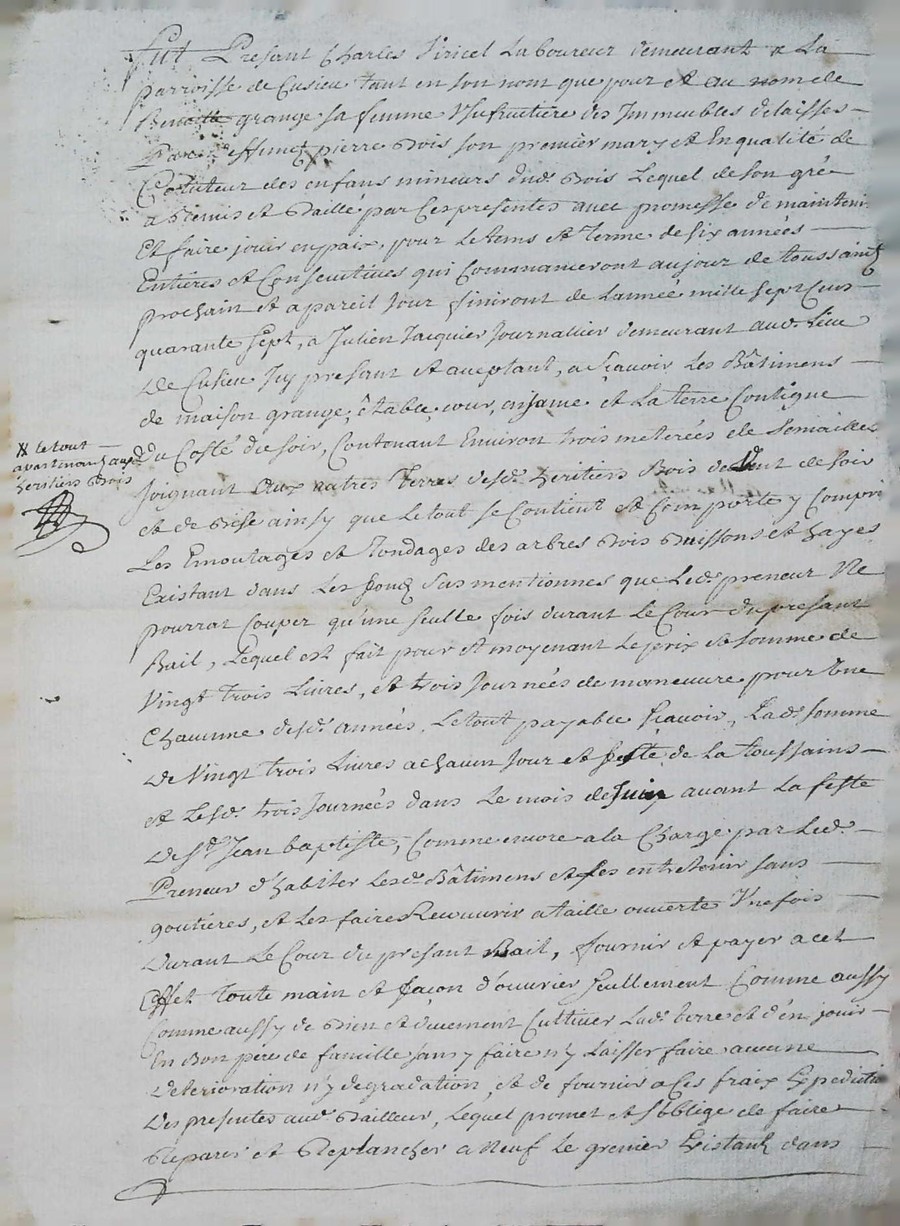 Fut Presant Charles Siricel Laboureur demeurant a La
parroisse de Cusieu tant en son nom que pour et au nom de
Benoite grange sa femme Usufruitiere des Immeubles delaisses
Par deffunct pierre Bois son premier mary et En qualité de
Cotuteur des enfans mineurs dud. Bois Lequel de son gré
a Remis et Baillé par Ces presentes avec promesse de maintenir
Et faire jouir en paix, pour le tems et Terme de six années
Entieres et Consecutives qui Commanceront au jour de toussaints
prochain et a pareil Jour finiront de Lannée mille sept Cens
quarante sept, a Julien Jacquier Journallier demeurant aud. Lieu
De Cusieu Icy presant et aceptant, a sçavoir Les Bâtimens
de maison grange, êtable, cour, et La terre Contigue
Du Costé du soir, Contenant Environ trois meterées de Semailles
Joignant aux autres Terres desd. heritiers Bois de soir
et de Bise ainsy que Le tout se Contient et Comporte y Compris
Les Emoutages et Tondages des arbres Bois Buissons et hayes
Existant dans Les fonds sus mentionnes que Led. preneur Ne
pourrat Couper qu'une seulle fois durant Le Cour du presant
Bail, Lequel est fait pour et moyenant Le prix et somme de
Vingt trois Livres, et trois Journées de maneuvre pour Une
Chacunne desd. années, Le tout payable sçavoir, Lad. somme
De Vingt trois Livres a chacun Jour et feste de La toussains
et Lesd. trois Journées dans Le mois de Juin avant La feste
de St. Jean baptiste, Comme encore a la Charge par Led.
Preneur d'habiter Lesd. Bâtimens et Les entretenir sans
goutieres, et Les faire Recouvrir a taille ouverte Une fois
Durant Le Cour du presant Bail, fournir et payer a cet
Effet Toute main et façon d'ouvrier seullement Comme aussy
Comme aussy de Bien et deuement Cultiver Lad. terre et d'en jouir
En Bon pere de famille sans y faire n'y Laisser faire aucune
Deterioration n'y degradation, et de fournir a ses fraix Expedition
Des presentes aud. Bailleur, Lequel promet et s'oblige de faire
Reparer et Replancher a Neuf Le grenier Existant dans
X le tout
apartenant aux
heritiers Bois